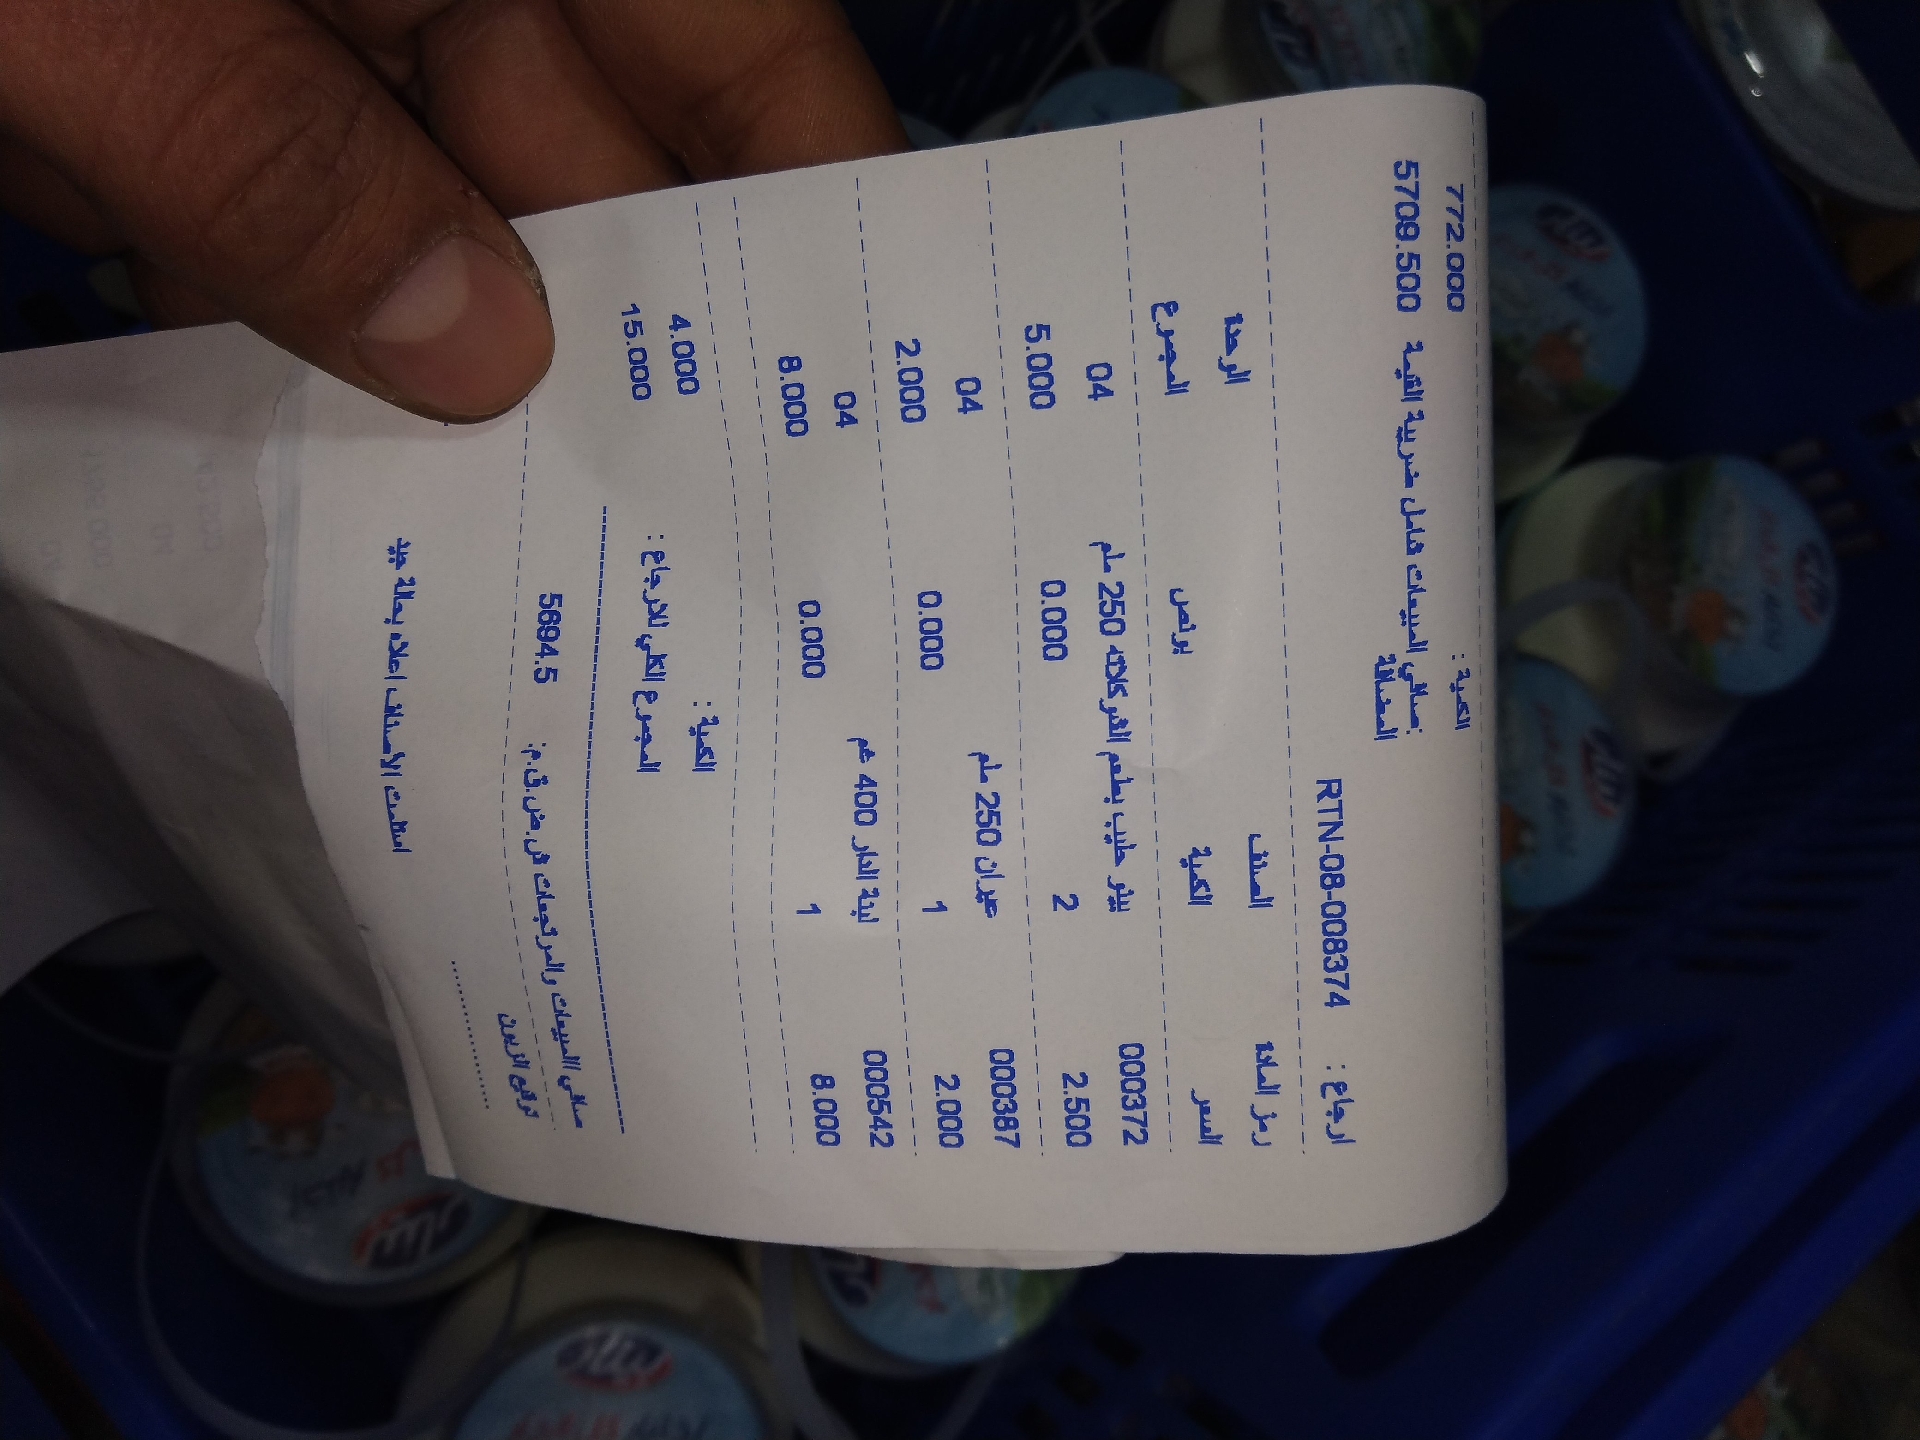 الكمية: 772.000
صافي المبيعات شامل ضريبة القيمة 5709.500
المضافة:
ارجاع : RTN-08-008374
رمز المادة الصنف الوحدة
السعر الكمية بونص المجموع
000372 بينو حليب بطعم الشوكلاته 250 ملم 04
2.500 2 0.000 5.000
000387 عيران 250 ملم 04
2.000 1 0.000 2.000
000542 لبنة الدار 400 غم 04
8.000 1 0.000 8.000
الكمية : 4.000
المجموع الكلي للارجاع : 15.000
صافي المبيعات والمرتجعات ش.ض.ق.م: 5694.5
توقيع الزبون
استلمت الأصناف اعلاه بحالة جيد